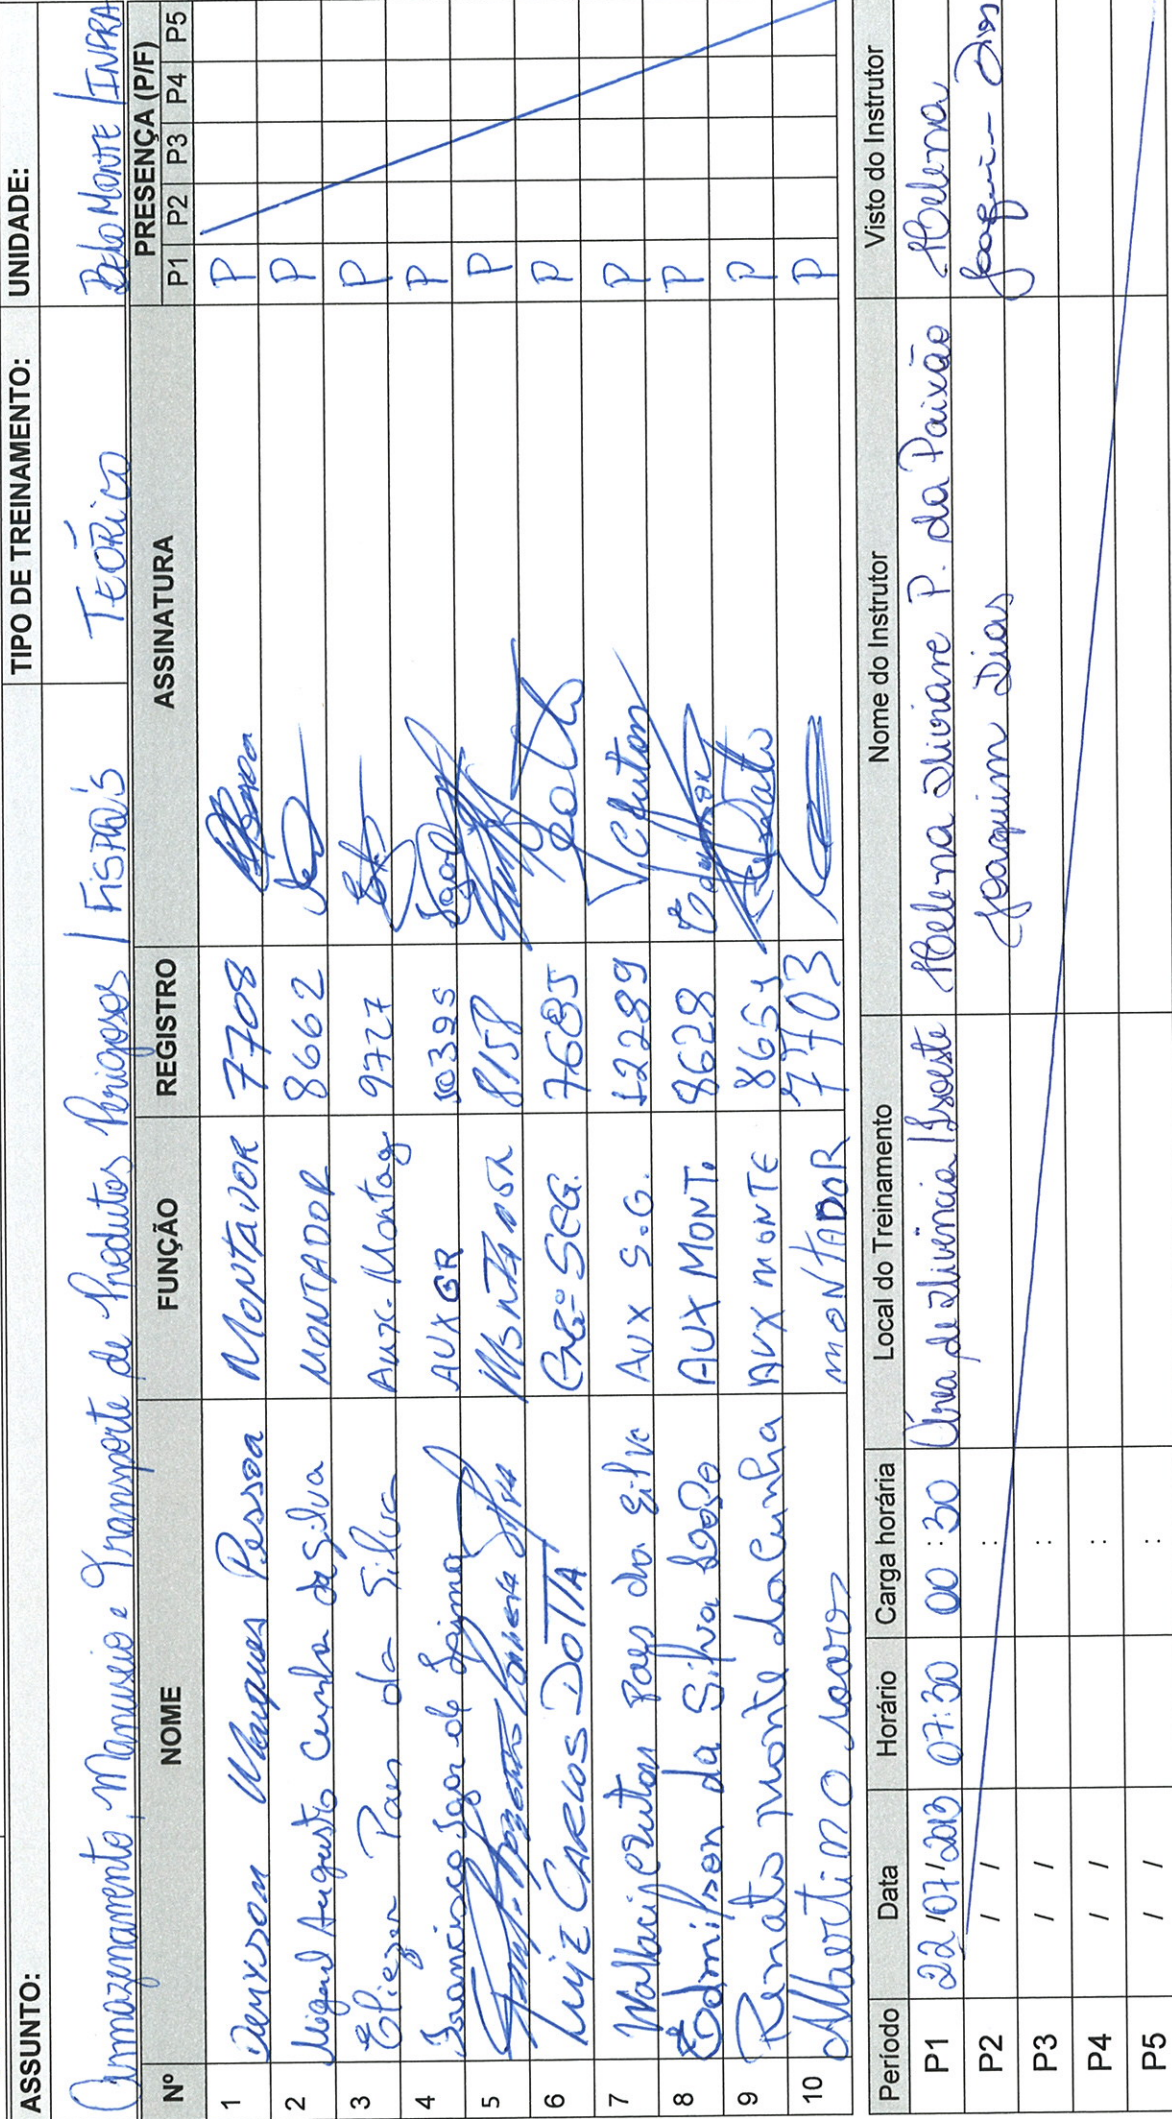 ASSUNTO: TIPO DE TREINAMENTO: UNIDADE:
Armazenamento, Manuseio e Transporte de Produtos Perigosos / FISPQ's TEÓRICO BELO MONTE / INFRA
Nº NOME FUNÇÃO REGISTRO ASSINATURA PRESENÇA (P/F)
P1 P2 P3 P4 P5
1 Denyson Marques Pessoa MONTADOR 7708 P
2 Miguel Augusto Cunha da Silva MONTADOR 8662 P
3 Eliezer Paes da Silva Aux. Montag 9727 P
4 Francisco Igor de Lima AUX GR 10395 P
5 Silva 8158 P
6 LUIZ CARLOS DOTA SEG. 7685 Dota P
7 Paes da Silva AUX S.G. 12289 P
8 Edmilson da Silva AUX MONT. 8628 Edmilson P
9 Renato monte da cunha AUX MONTE 8651 Renato P
10 MONTADOR 7703 P
Período Data Horário Carga horária Local do Treinamento Nome do Instrutor Visto do Instrutor
P1 22/07/2013 07:30 00:30 Área de Vivência / Isoeste Helena Viviane P. da Paixão Helena
P2 / / : Joaquim Dias Joaquim Dias
P3 / / :
P4 / / :
P5 / / :